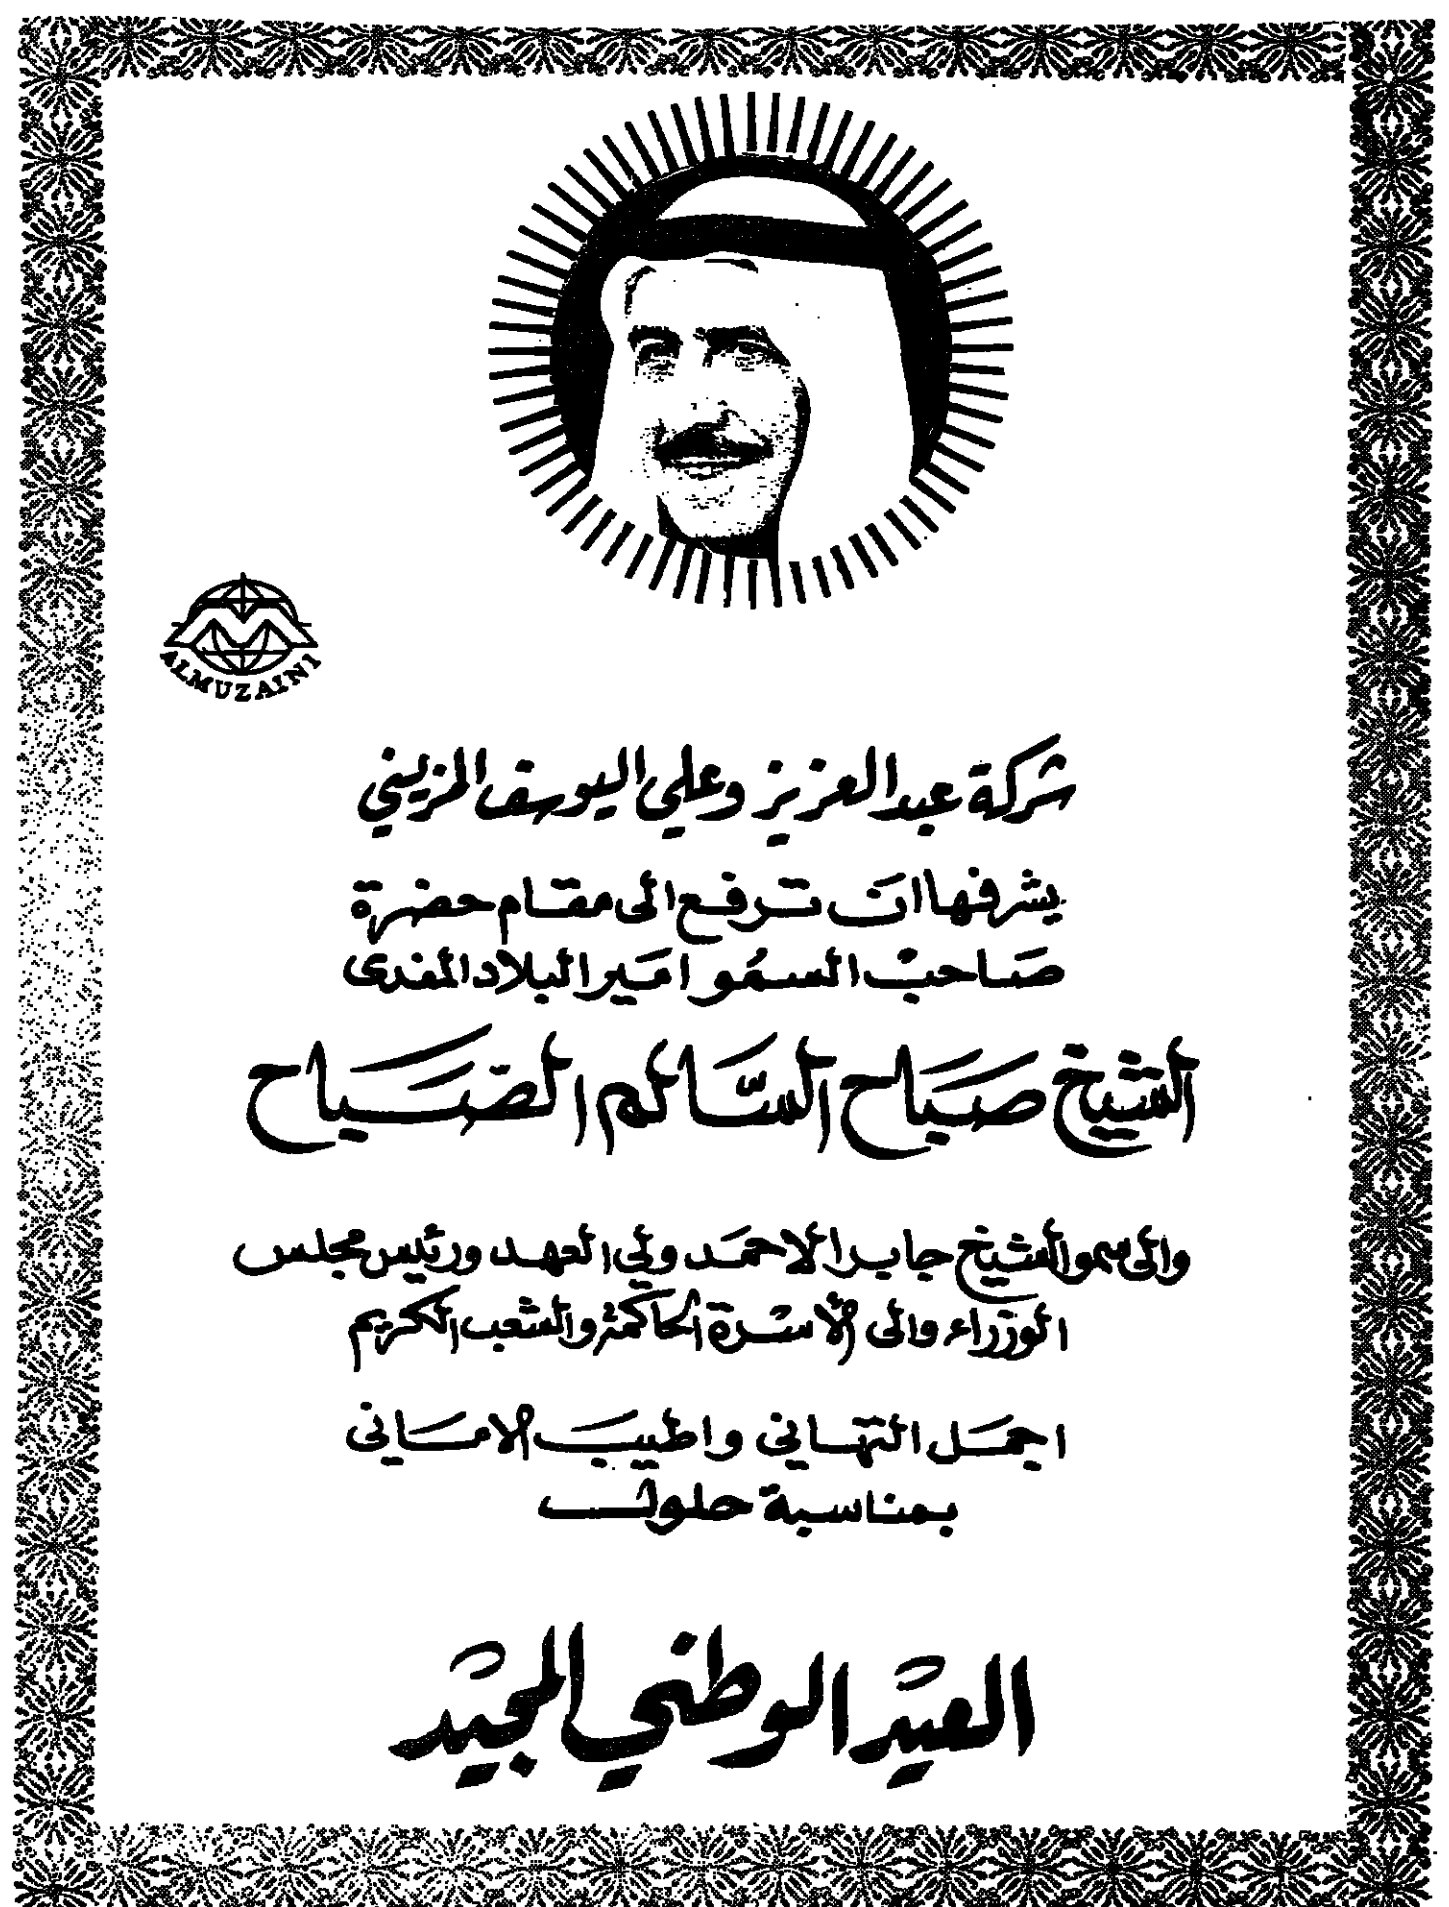 ALMUZAINI
شركة عبد العزيز وعلي اليوسف المزيني
يشرفها ان ترفع الى مقام حضرة
صاحب السمو امير البلاد المفدى
الشيخ صباح السالم الصباح
والى سمو الشيخ جابر الاحمد ولي العهد ورئيس مجلس
الوزراء والى الأسرة الحاكمة والشعب الكريم
اجمل التهاني واطيب الاماني
بمناسبة حلول
العيد الوطني المجيد